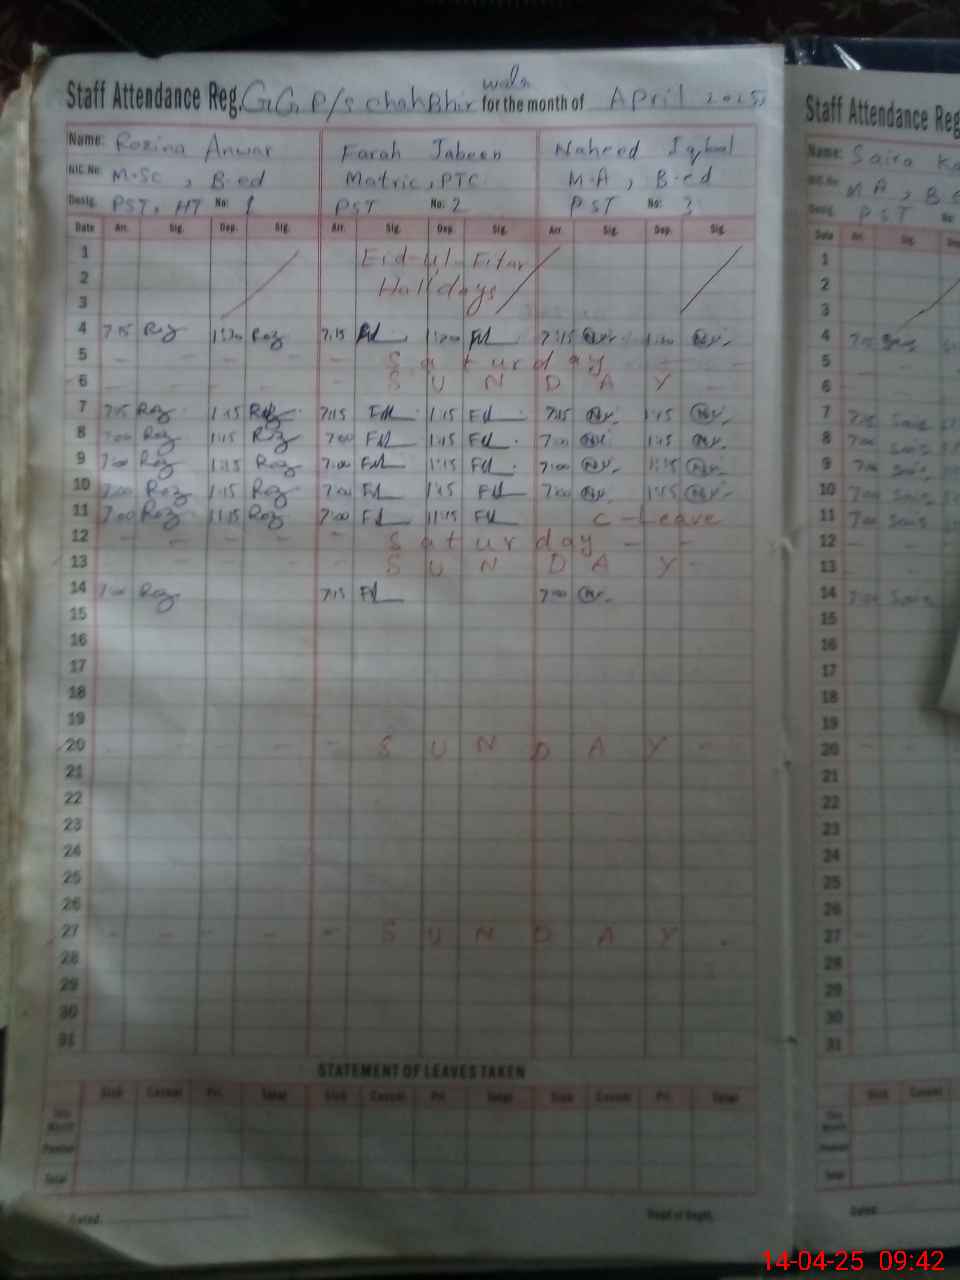 Staff Attendance Reg. G.G.P/s chahBhir wala for the month of April 2025
Name: Rozina Anwar Farah Jabeen Naheed Iqbal
NIC.No: M.Sc, B.ed Matric, PTC M.A, B.ed
Desig. PST, HT No: 1 PST No: 2 PST No: 3
Date Arr. Sig. Dep. Sig. Arr. Sig. Dep. Sig. Arr. Sig. Dep. Sig.
1 Eid-ul-Fitar
2 Holidays
3
4 7:15 Roz Roz 7:15
5 - - - - - Saturday - -
6 - - - - - SUNDAY -
7 7:15 Roz 1:15 Roz 7:15 1:15 7:15 1:15
8 7:00 Roz 1:15 Roz 7:00 1:15 7:00 1:15
9 7:00 Roz 1:15 Roz 7:00 1:15 7:00 1:15
10 7:00 Roz 1:15 Roz 7:00 1:15 7:00 1:15
11 7:00 Roz 11:15 Roz 7:00 11:15 C-Leave
12 - - - - - Saturday - -
13 - - - - - SUNDAY -
14 7:00 Roz 7:15 7:00
15
16
17
18
19
20 - - - - - SUNDAY -
21
22
23
24
25
26
27 - - - - - SUNDAY .
28
29
30
31
STATEMENT OF LEAVES TAKEN
Sick Casual Pri. Total Sick Casual Pri. Total Sick Casual Pri. Total
This Month
Previous
Total
Dated: Head of Deptt.
Staff Attendance Reg
Name: Saira
NIC.No: M.A,
Desig. PST No:
Date Arr. Sig. Dep.
1
2
3
4
5
6
7 7:15
8 7:00
9 7:00
10 7:00
11 7:00
12
13
14 7:00
15
16
17
18
19
20
21
22
23
24
25
26
27
28
29
30
31
Sick Casual
This Month
Previous
Total
Dated:
14-04-25 09:42